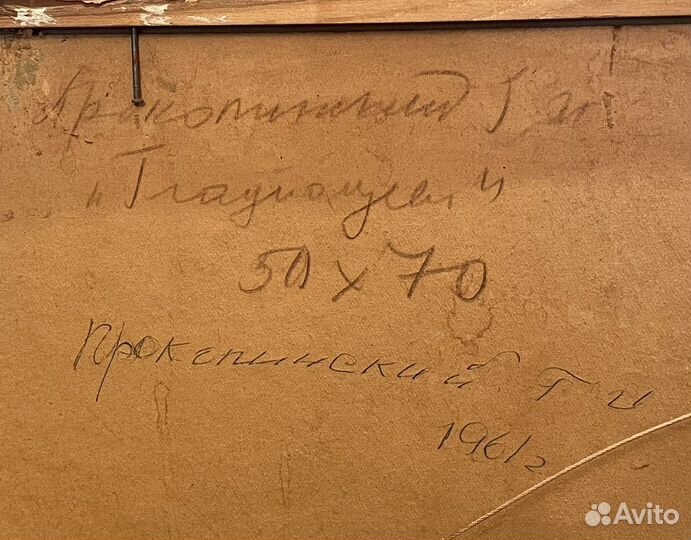 Прокопинский Г. И.
„Гладиолусы“
50 x 70
Прокопинский Г И
1961г
Avito